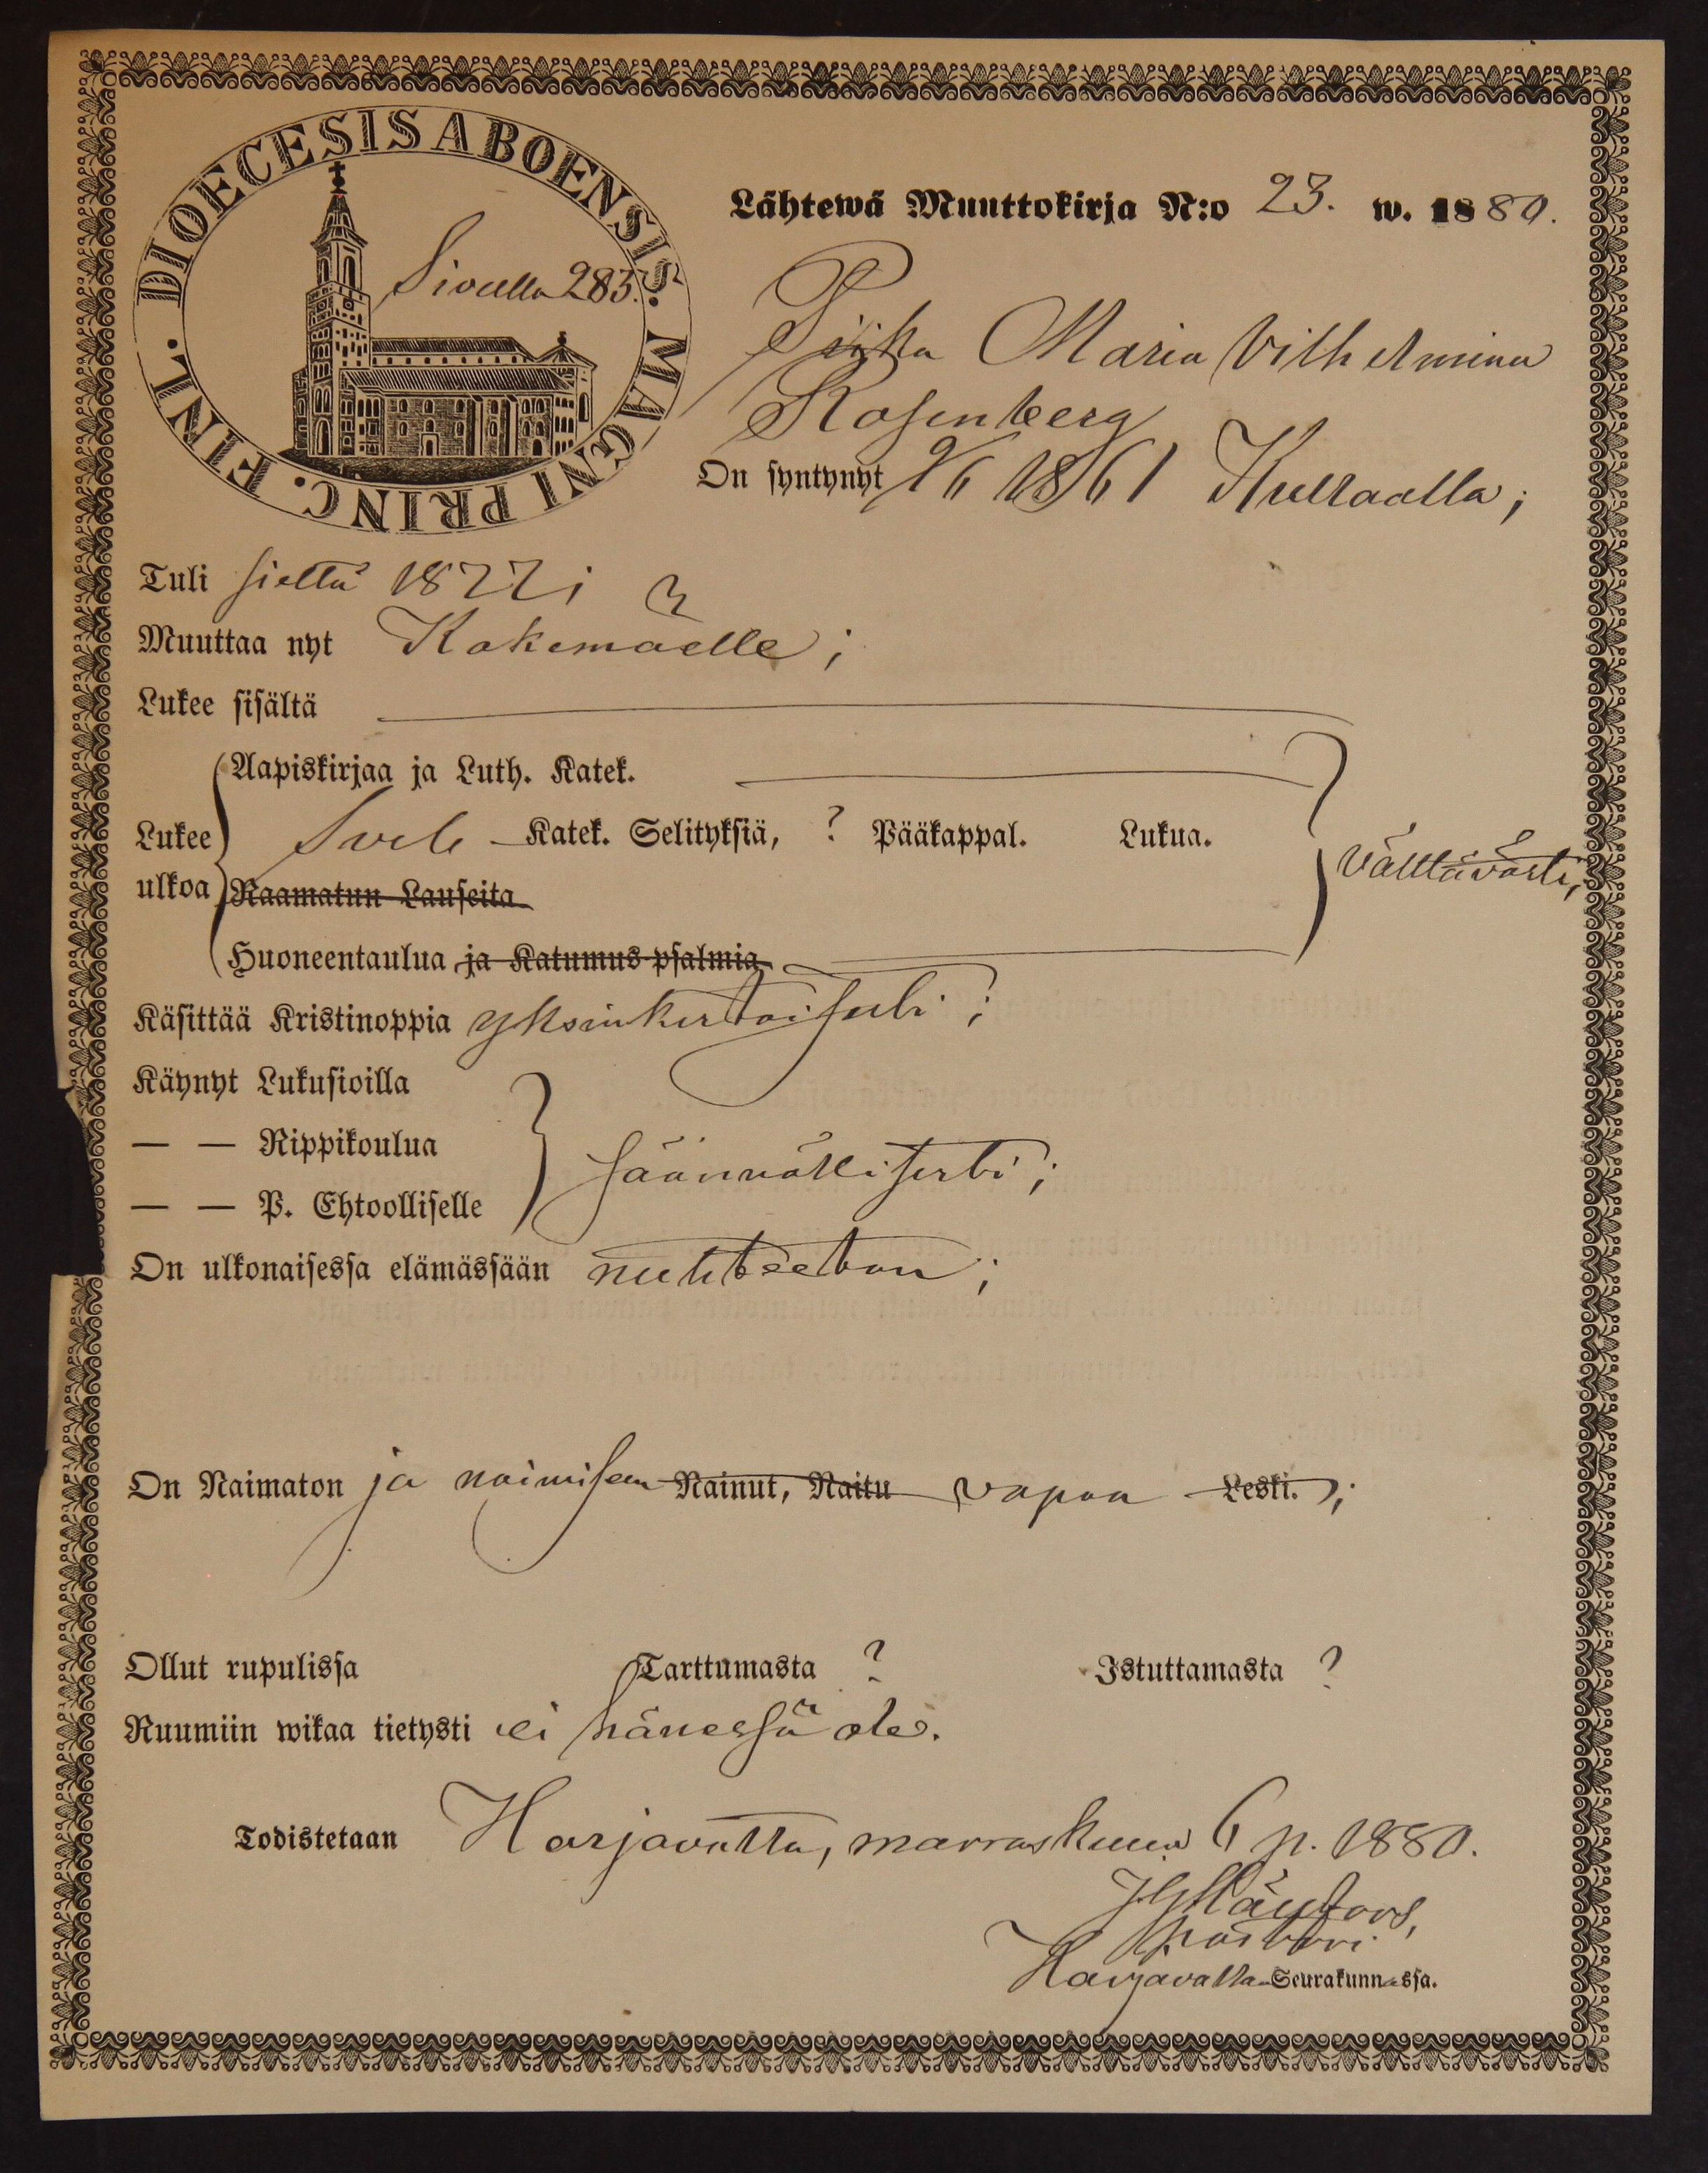 DIOECESIS ABOENSIS. MAGNI PRINC. FINL.
Sivulla 283.
Lähtewä Muuttokirja N:o 23. w. 1880.
Piika Maria Vilhelmina
Rosenberg
On syntynyt 9/6 1861 Kullaalla;
Tuli sieltä 1877;
Muuttaa nyt Kokemäelle;
Lukee sisältä
Aapiskirjaa ja Luth. Katek.
Lukee ulkoa
Katek. Selityksiä, ? Pääkappal. Lukua.
välttävästi,
Raamatun Lauseita
Huoneentaulua ja Katumus-psalmia
Käsittää Kristinoppia yksinkertaisesti;
Käynyt Lukusioilla
— — Rippikoulua
— — P. Ehtoolliselle
säännöllisesti;
On ulkonaisessa elämässään nuhteeton;
On Naimaton ja naimiseen Nainut, Naitu vapaa Leski.;
Ollut rupulissa Tarttumasta ? Istuttamasta ?
Ruumiin wikaa tietysti ei hänessä ole.
Todistetaan Harjavalta, marraskuun 6 p. 1880.
pastori.
Harjavallan Seurakunnassa.